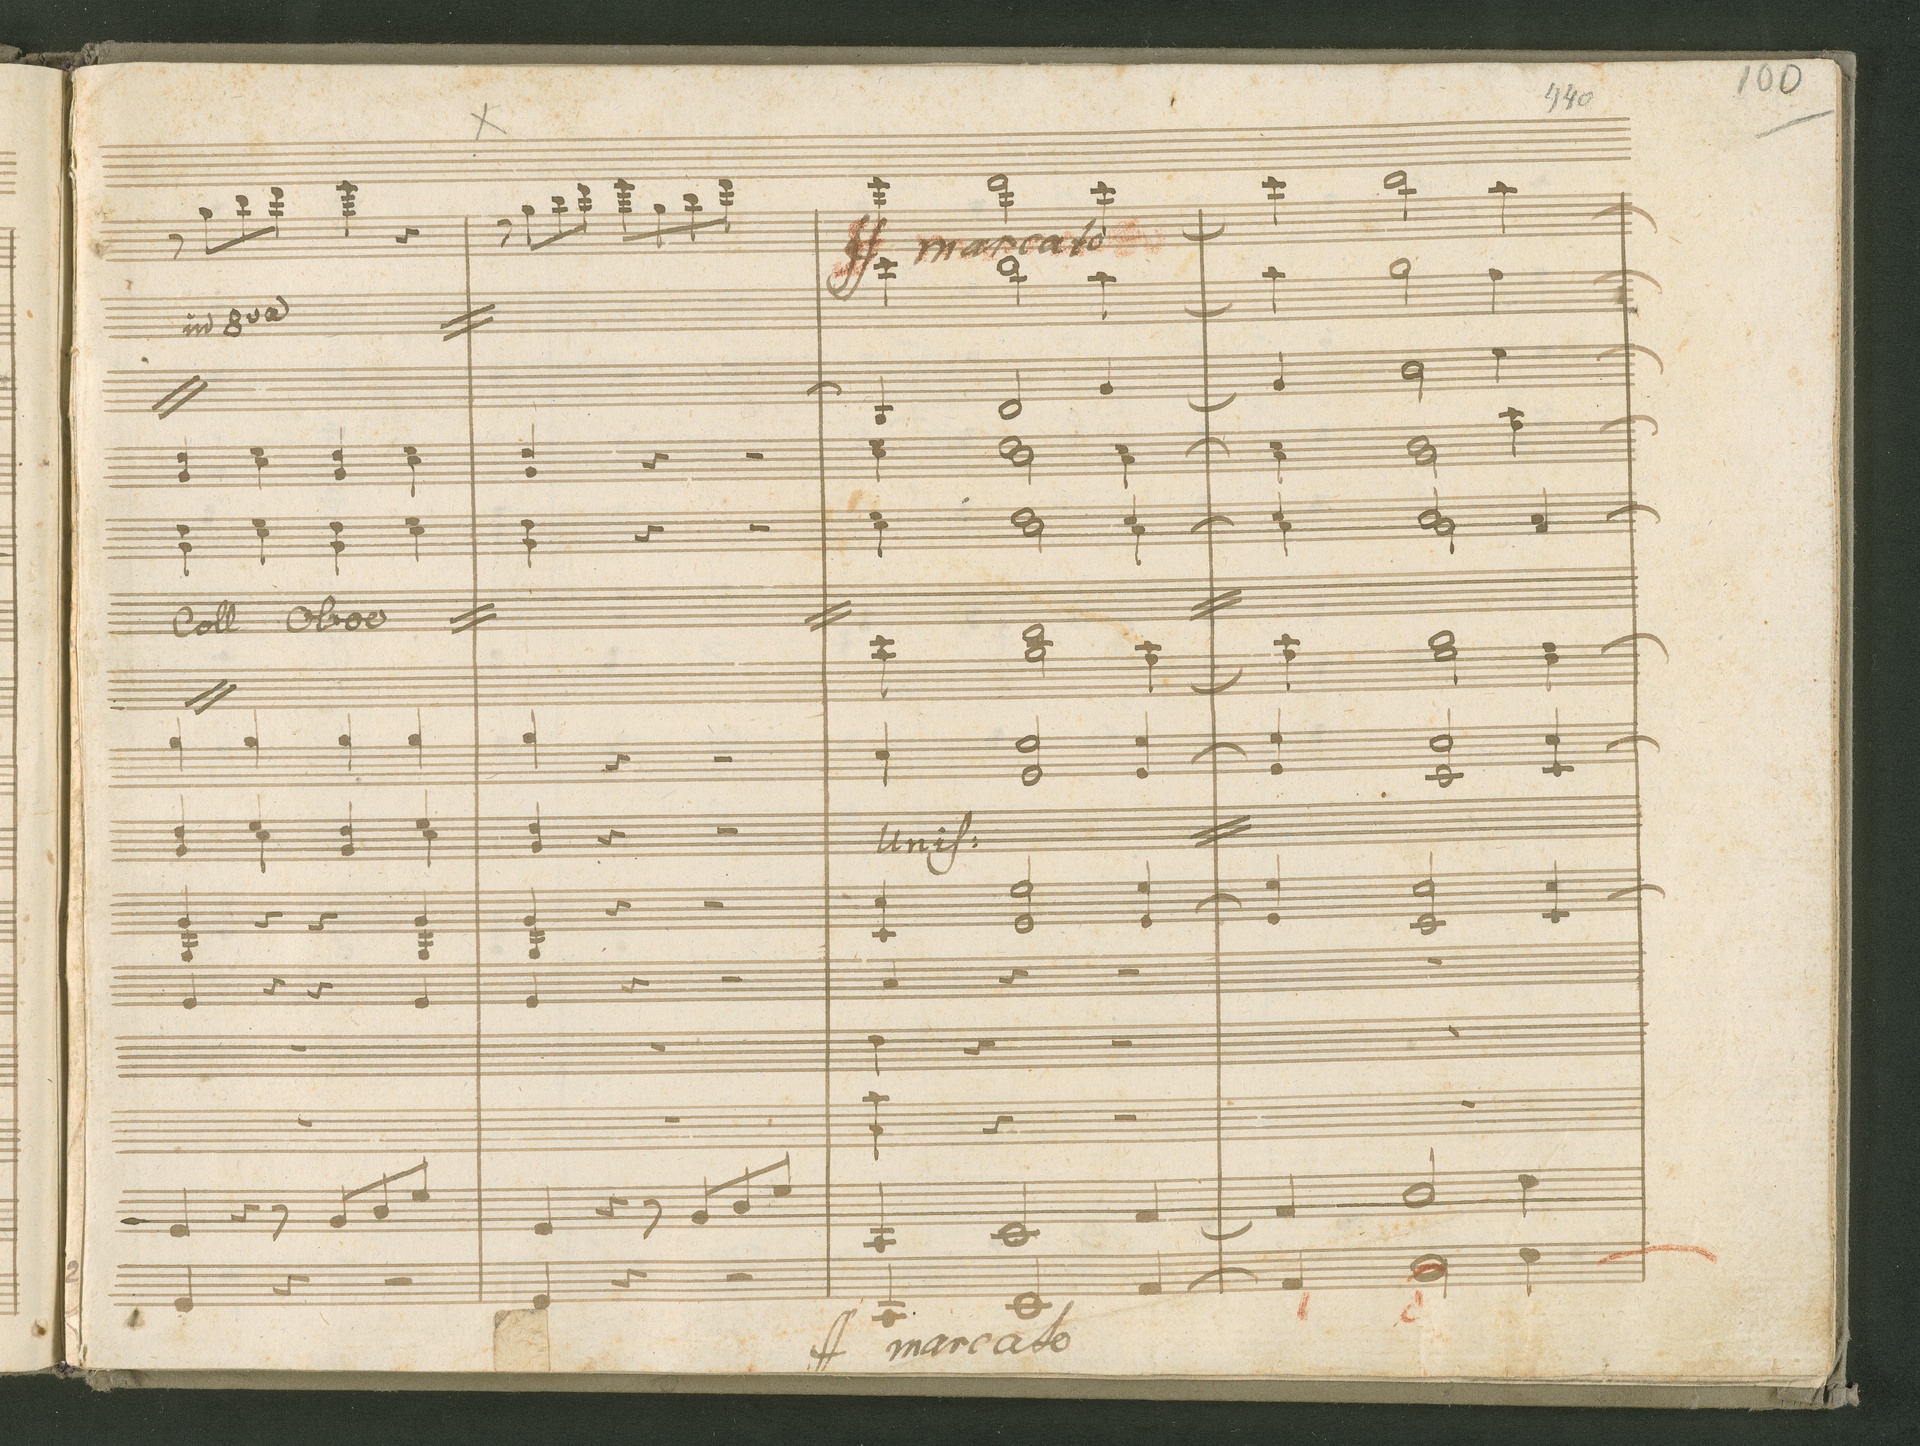 100
440
ff marcato
in 8va
Coll Oboe
Unis:
ff marcato